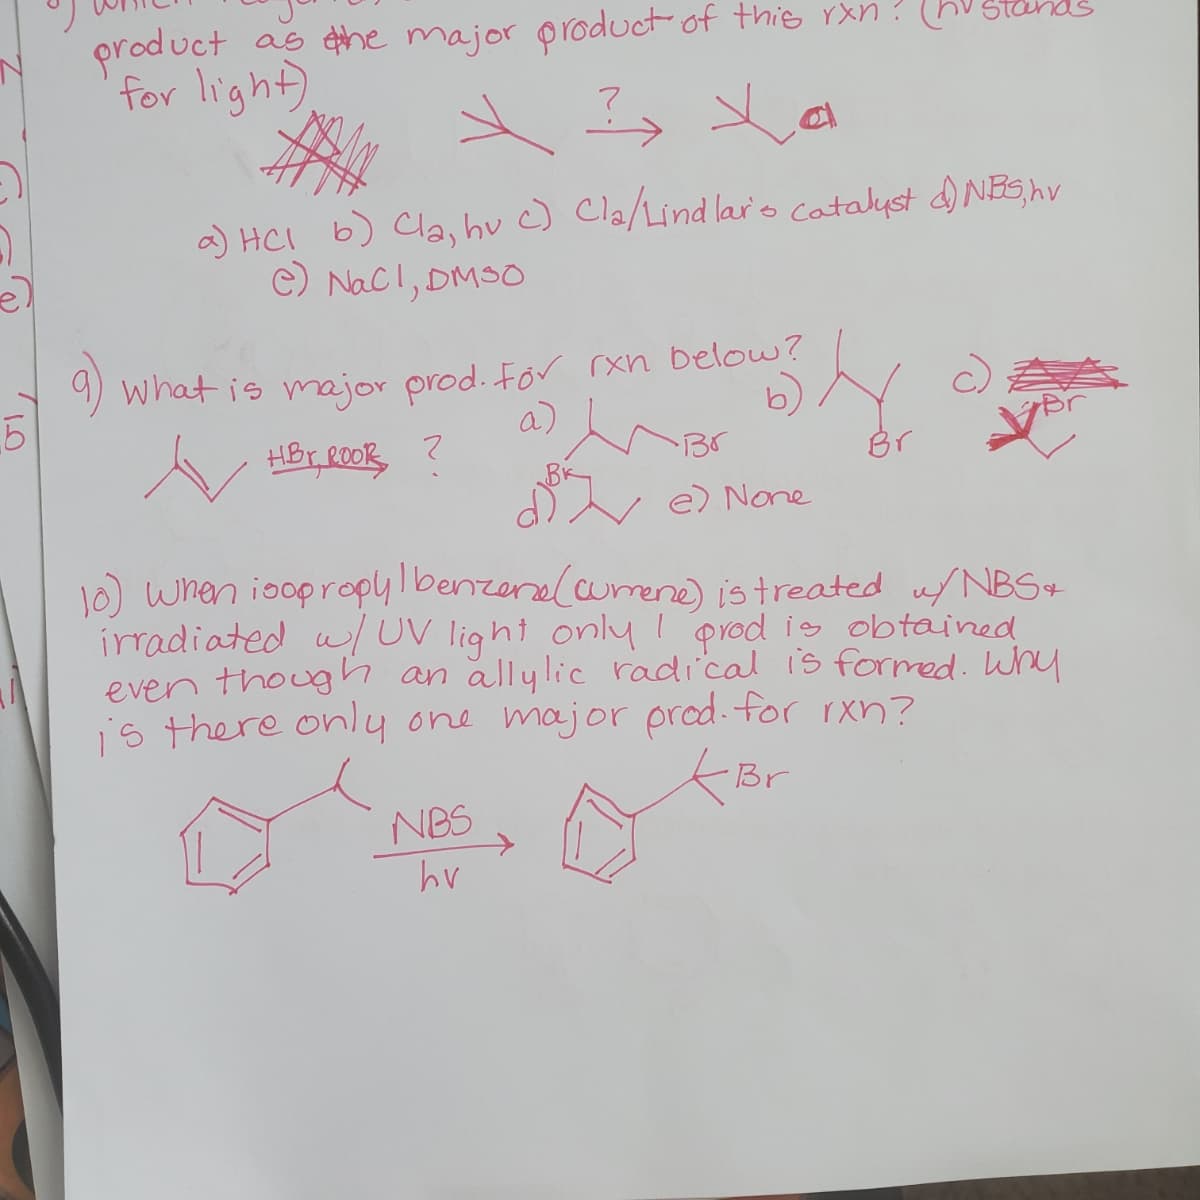 product as the major product of this rxn? (hv stands
for light)
?
Cl
a) HCl b) Cl2, hv c) Cl2/Lindlar's catalyst d) NBS, hv
e) NaCl, DMSO
9) What is major prod. for rxn below?
HBr, ROOR ?
a) Br
b) Br
c) Br
d) Br
e) None
10) When isopropylbenzene (cumene) is treated w/ NBS &
irradiated w/ UV light only 1 prod is obtained
even though an allylic radical is formed. Why
is there only one major prod. for rxn?
NBS
hv
Br
e)
5